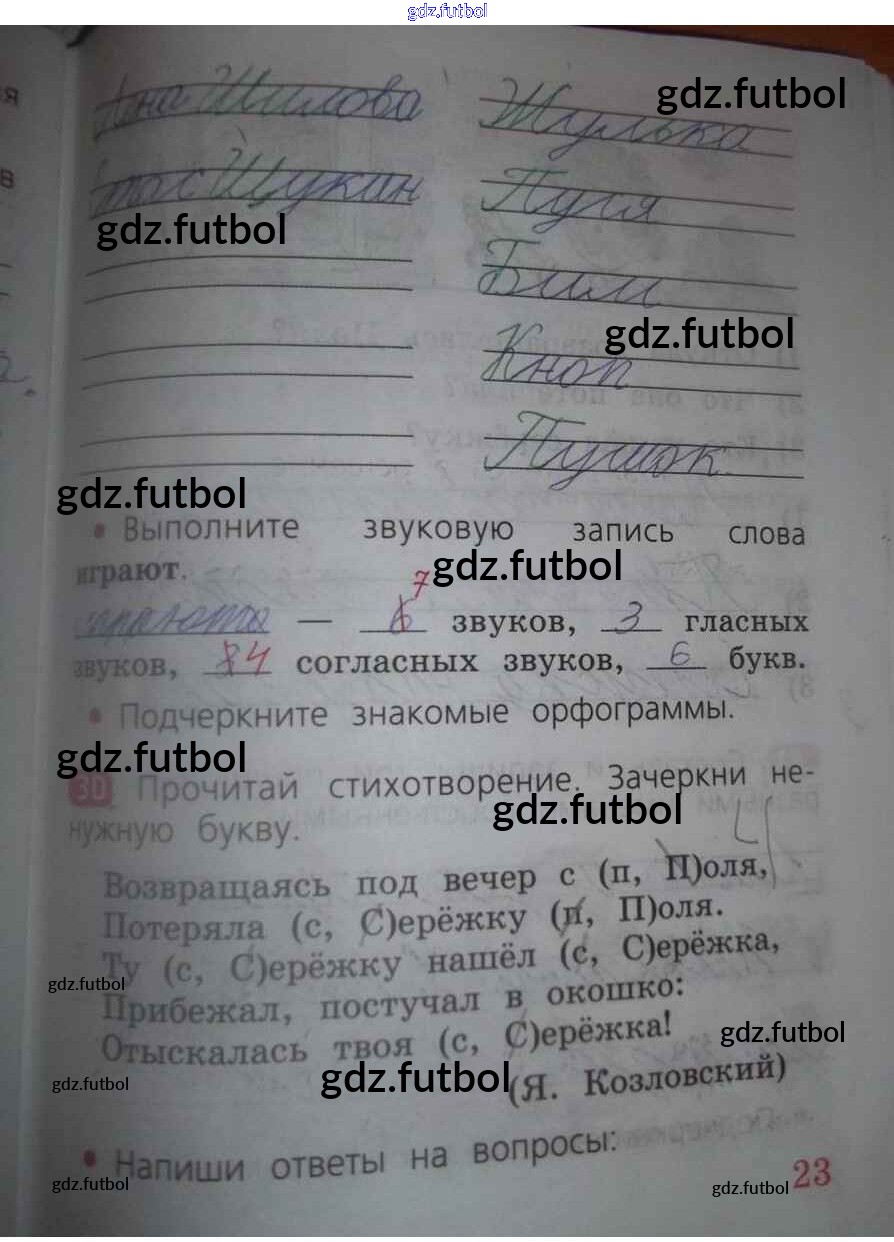 gdz.futbol
Шилова Жулька gdz.futbol
Щукин Пуля
gdz.futbol
Бим
gdz.futbol
Кноп
Пушок
gdz.futbol
• Выполните звуковую запись слова
играют. gdz.futbol
7
— 6 звуков, 3 гласных
звуков, 4 согласных звуков, 6 букв.
• Подчеркните знакомые орфограммы.
gdz.futbol
30 Прочитай стихотворение. Зачеркни не-
gdz.futbol
нужную букву.
Возвращаясь под вечер с (п, П)оля,
Потеряла (с, С)ерёжку (п, П)оля.
Ту (с, С)ерёжку нашёл (с, С)ерёжка,
gdz.futbol
Прибежал, постучал в окошко:
Отыскалась твоя (с, С)ерёжка!
gdz.futbol
gdz.futbol gdz.futbol (Я. Козловский)
• Напиши ответы на вопросы:
gdz.futbol gdz.futbol 23